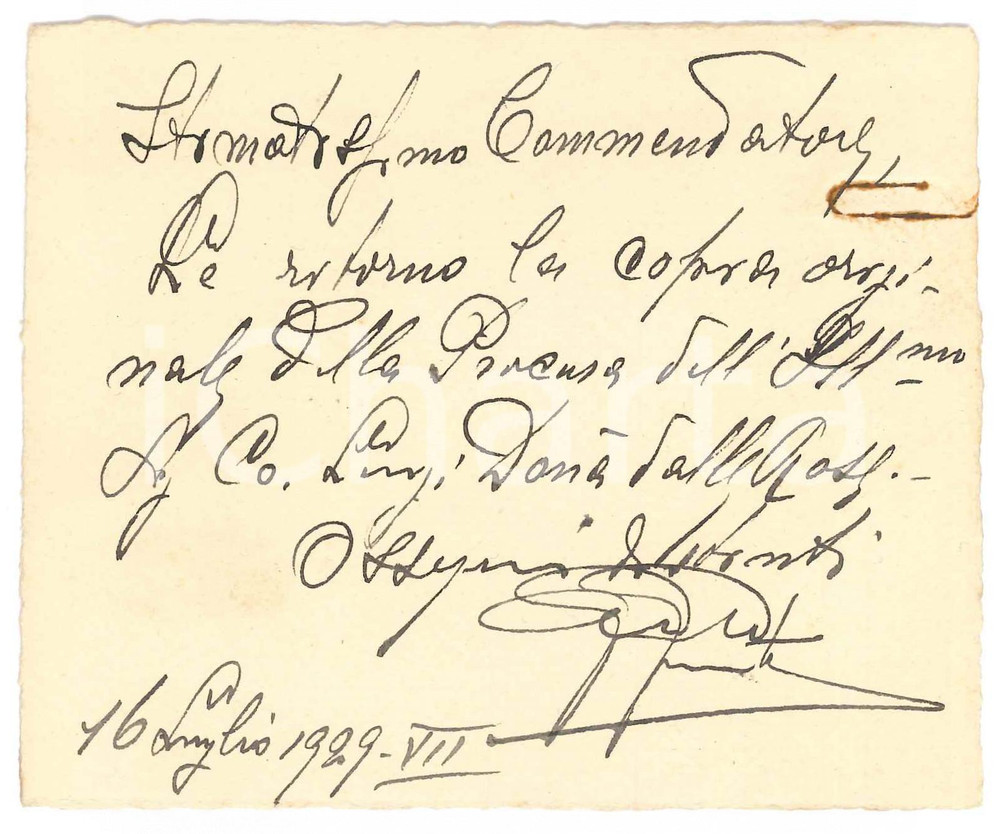 Stimatissimo Commendatore,
Le ritorno la copia origi-
nale della Procura dell'Ill-mo
Sig Co. Luigi Donà dalle Rose.-
Ossequi devoti
16 Luglio 1929-VII
iCharta